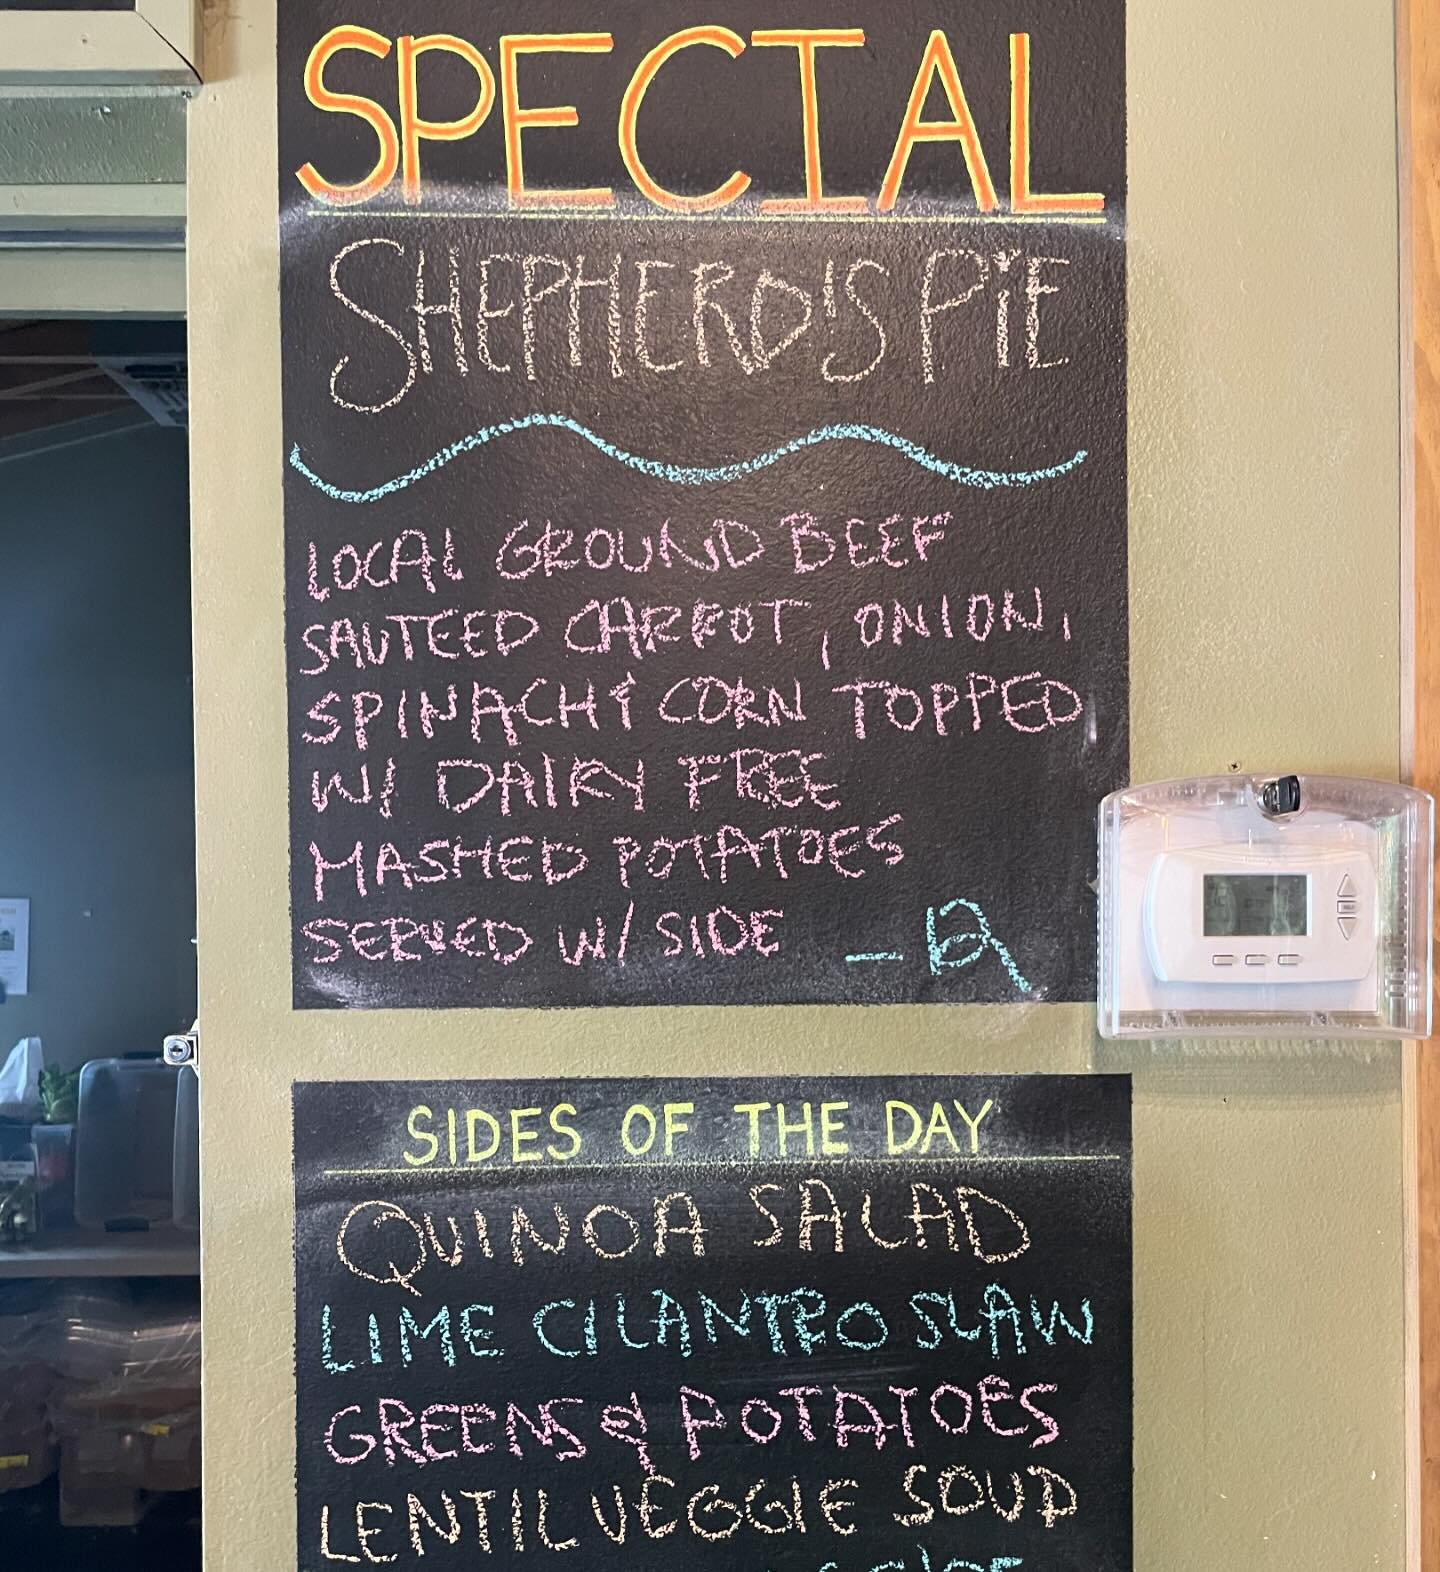 SPECIAL
SHEPHERD'S PIE
LOCAL GROUND BEEF
SAUTEED CARROT, ONION,
SPINACH & CORN TOPPED
W/ DAIRY FREE
MASHED POTATOES
SERVED W/ SIDE
SIDES OF THE DAY
QUINOA SALAD
LIME CILANTRO SLAW
GREENS & POTATOES
LENTIL VEGGIE SOUP